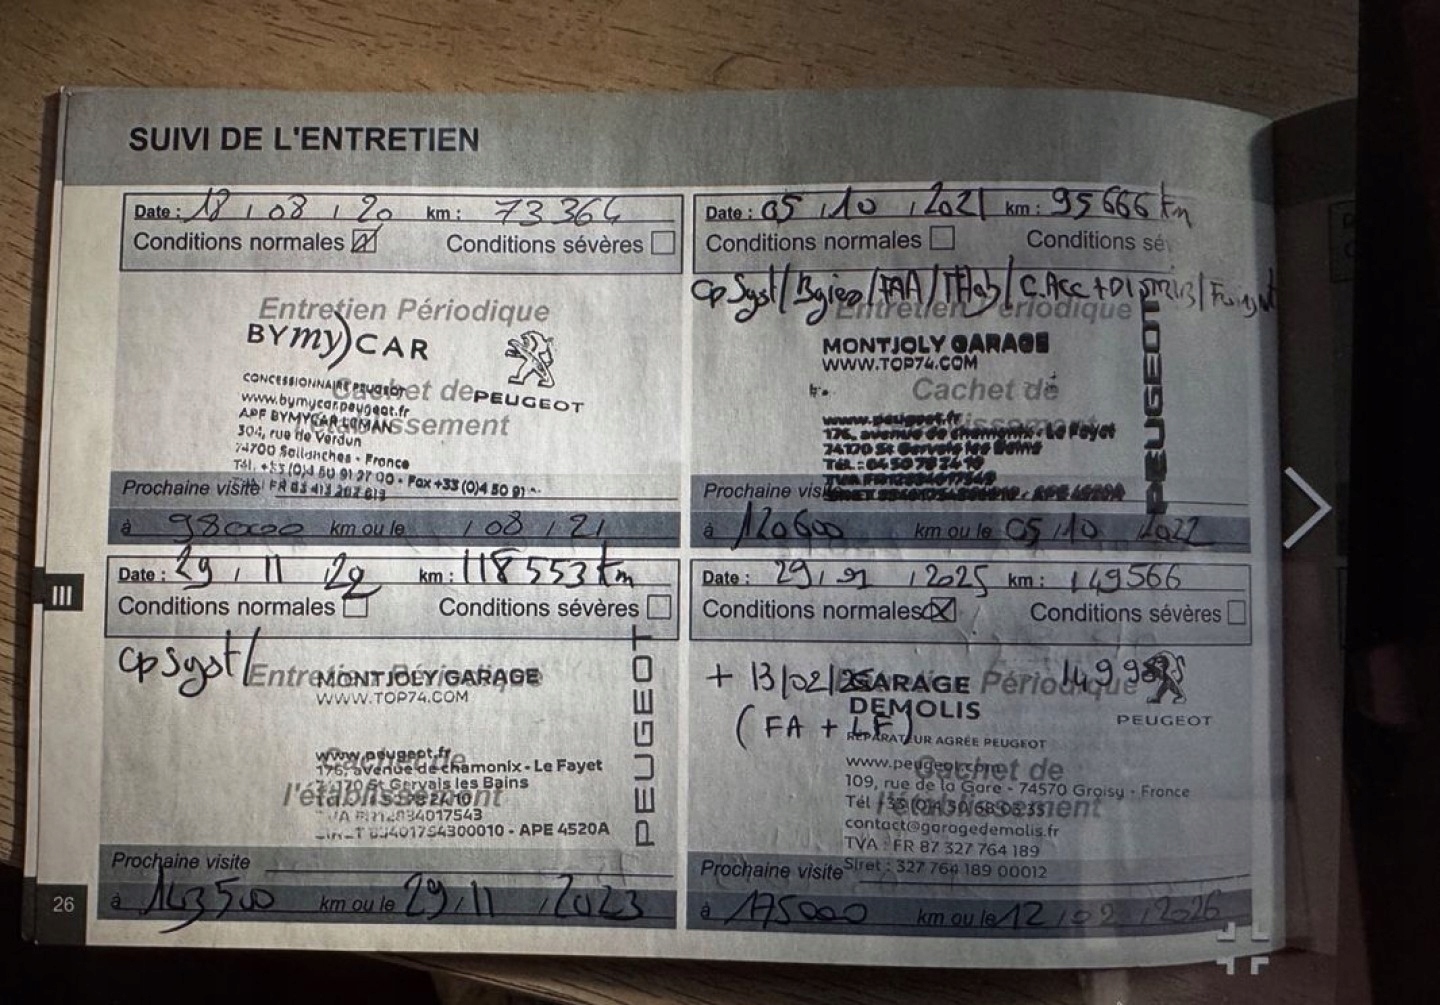 SUIVI DE L'ENTRETIEN
Date : 18 / 08 / 20 km : 73 364
Conditions normales Conditions sévères
Entretien Périodique
BYmy)CAR
CONCESSIONNAIRE PEUGEOT
PEUGEOT
Cachet de
www.bymycar.peugeot.fr
l'établissement
304, rue de Verdun
74700 Sallanches - France
Tél. +33 (0)4 50 91 27 00 - Fax +33 (0)4 50 91
Prochaine visite
à 98000 km ou le / 08 / 21
Date : 05 / 10 / 2021 km : 95 666 km
Conditions normales Conditions sé
Cp Syst / Bgies / FAA / FHab / C.Acc +
Entretien Périodique
MONTJOLY GARAGE
WWW.TOP74.COM
Cachet de
PEUGEOT
www.peugeot.fr
176, avenue de chamonix - Le Fayet
74170 St Gervais les Bains
Tél. : 04 50 78 24 10
Prochaine visi
à 120600 km ou le 05 / 10 2022
Date : 29 / 11 22 km : 118 553 km
Conditions normales Conditions sévères
Cp Syst /
Entretien Périodique
MONTJOLY GARAGE
WWW.TOP74.COM
PEUGEOT
www.peugeot.fr
Cachet de
176, avenue de chamonix - Le Fayet
74170 St Gervais les Bains
l'établissement
- APE 4520A
Prochaine visite
à 143500 km ou le 29 / 11 / 2023
Date : 29 / 01 / 2025 km : 149566
Conditions normales Conditions sévères
+ 13/02/25
Périodique
GARAGE
DEMOLIS
(FA + LF)
RÉPARATEUR AGRÉÉ PEUGEOT
PEUGEOT
www.peugeot.com
Cachet de
109, rue de la Gare - 74570 Groisy - France
l'établissement
contact@garagedemolis.fr
TVA : FR 87 327 764 189
Siret : 327 764 189 00012
Prochaine visite
à 175000 km ou le 12 / 02 / 2026
III
26